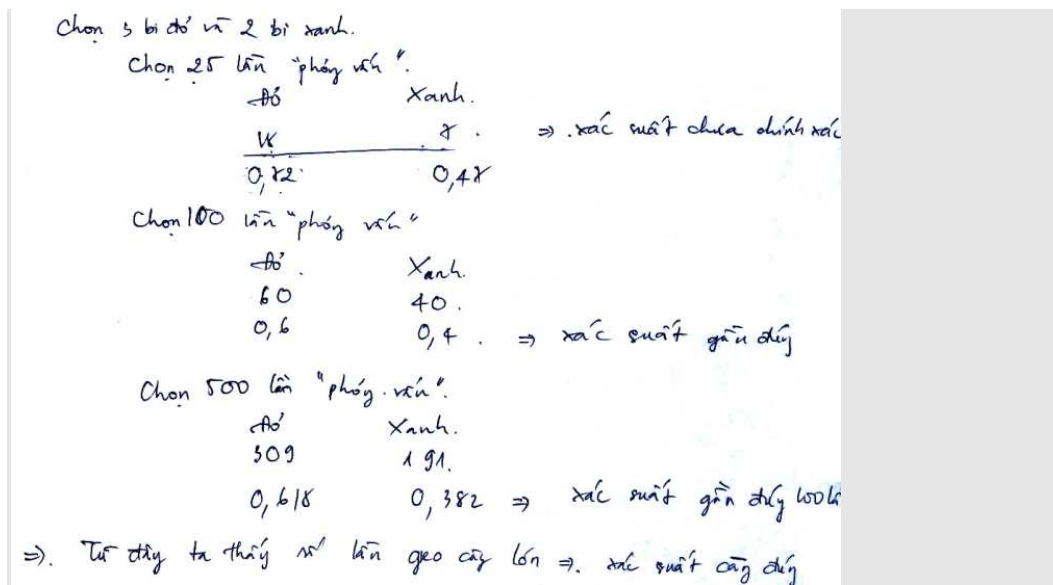 Chọn 3 bi đỏ và 2 bi xanh.
Chọn 25 lần "phỏng vấn".
Đỏ Xanh.
⇒ xác suất chưa chính xác
Chọn 100 lần "phỏng vấn"
Đỏ. Xanh.
60 40.
0,6 0,4. ⇒ xác suất gần đúng
Chọn 500 lần "phỏng vấn".
Đỏ Xanh.
309 191.
0,618 0,382 ⇒ xác suất gần đúng
⇒. Từ đây ta thấy số lần gieo càng lớn ⇒. xác suất càng đúng